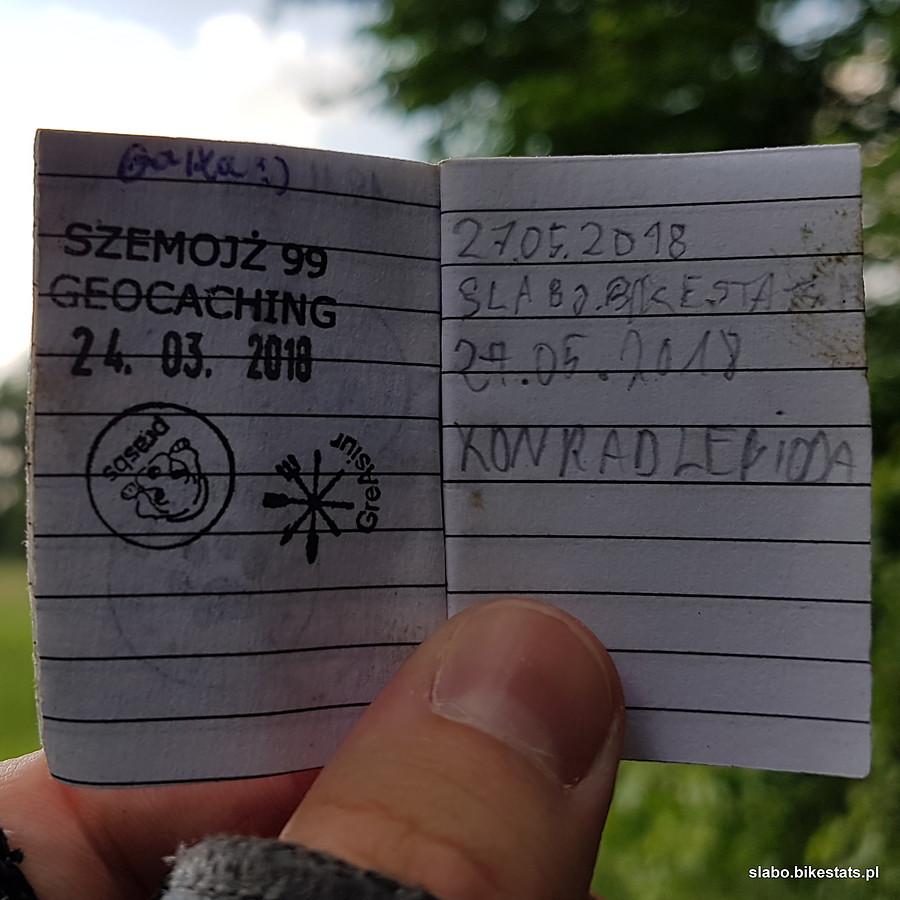 SZEMOJŻ 99
GEOCACHING
24. 03. 2018
prasbs
GreAsiur
27.05.2018
SLABO.BIKESTA
27.05.2018
KONRAD
slabo.bikestats.pl